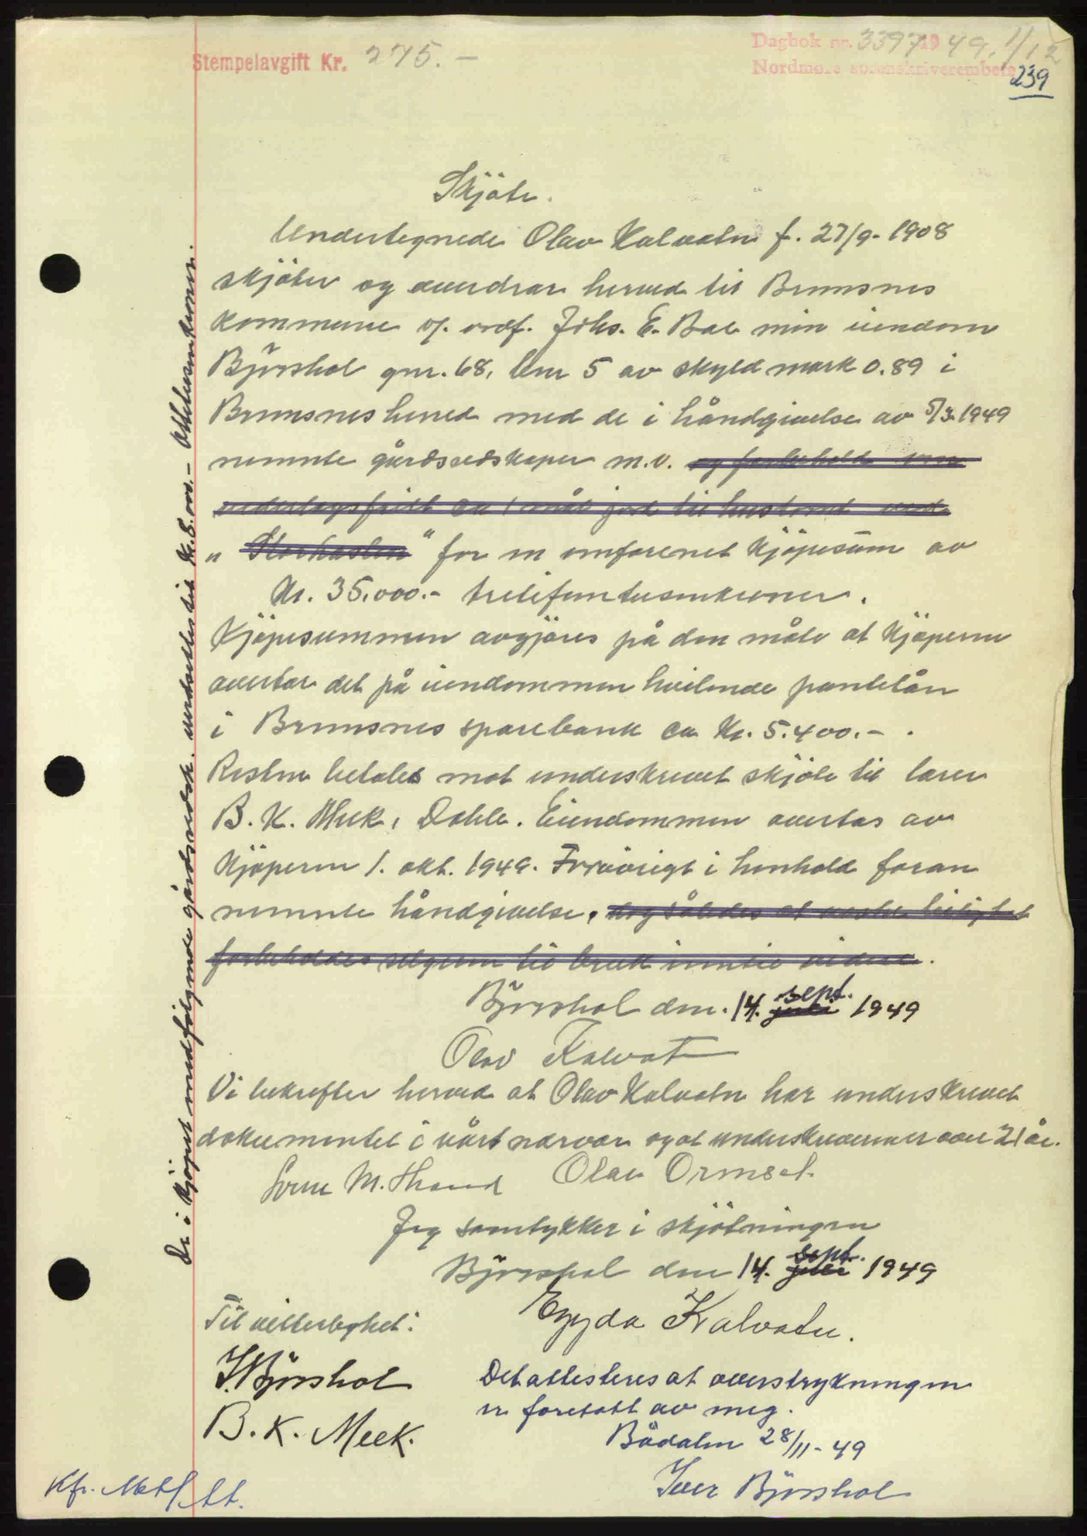 Stempelavgift Kr. 275.-
Dagbok nr. 3397 19 49. 1/12
Nordmøre sorenskriverembete
239
Skjöte.
Undertegnede Olav Kalvatn f. 27/9-1908
skjöter og overdrar herved til Bremsnes
kommune v/. ordf. Johs. E. Bae min eiendom
Bjørshol gnr. 68, bnr 5 av skyld mark 0.89 i
Bremsnes herred med de i håndgivelse av 5/3 1949
nemnte gårdsredskaper m.v. og forbehold min
vederlagsfritt ca 1 mål jord til hustomt ved
" Storhaslen " for en omforenet kjøpesum av
Kr. 35.000.- trettifemtusenkroner.
Kjøpesummen avgjøres på den måte at kjøperen
overtar det på eiendommen hvilende pantelån
i Bremsnes sparebank ca Kr. 5.400.- .
Resten betales mot underskrevet skjöte til lærer
B. K. Meek, Dahle. Eiendommen overtas av
kjøperen 1. okt. 1949. Forøvrigt i henhold foran
nemnte håndgivelse, dog således at endre leilighet
forbeholdes selgeren til bruk inntil videre.
Bjørshol den. 14. juli sept. 1949
Olav Kalvatn
Vi bekrefter herved at Olav Kalvatn har underskrevet
dokumentet i vårt nærvær og at underskriveren er over 21 år.
Sverre M. Strand Olav Ormset.
Jeg samtykker i skjötningen
Bjørshol den 14. juli sept. 1949
Eggda Kalvatn.
Til vitterlighet:
I. Bjørshol
B. K. Meek.
Det attesteres at overstrykningen
er foretatt av meg.
Bådalen 28/11-49
Iver Bjørshol
Kfr. Mekl/tt.
De i kjøpet medfølgende gårdsredsk. verdsettes til kr. 8.000.- Ottetusenkroner.